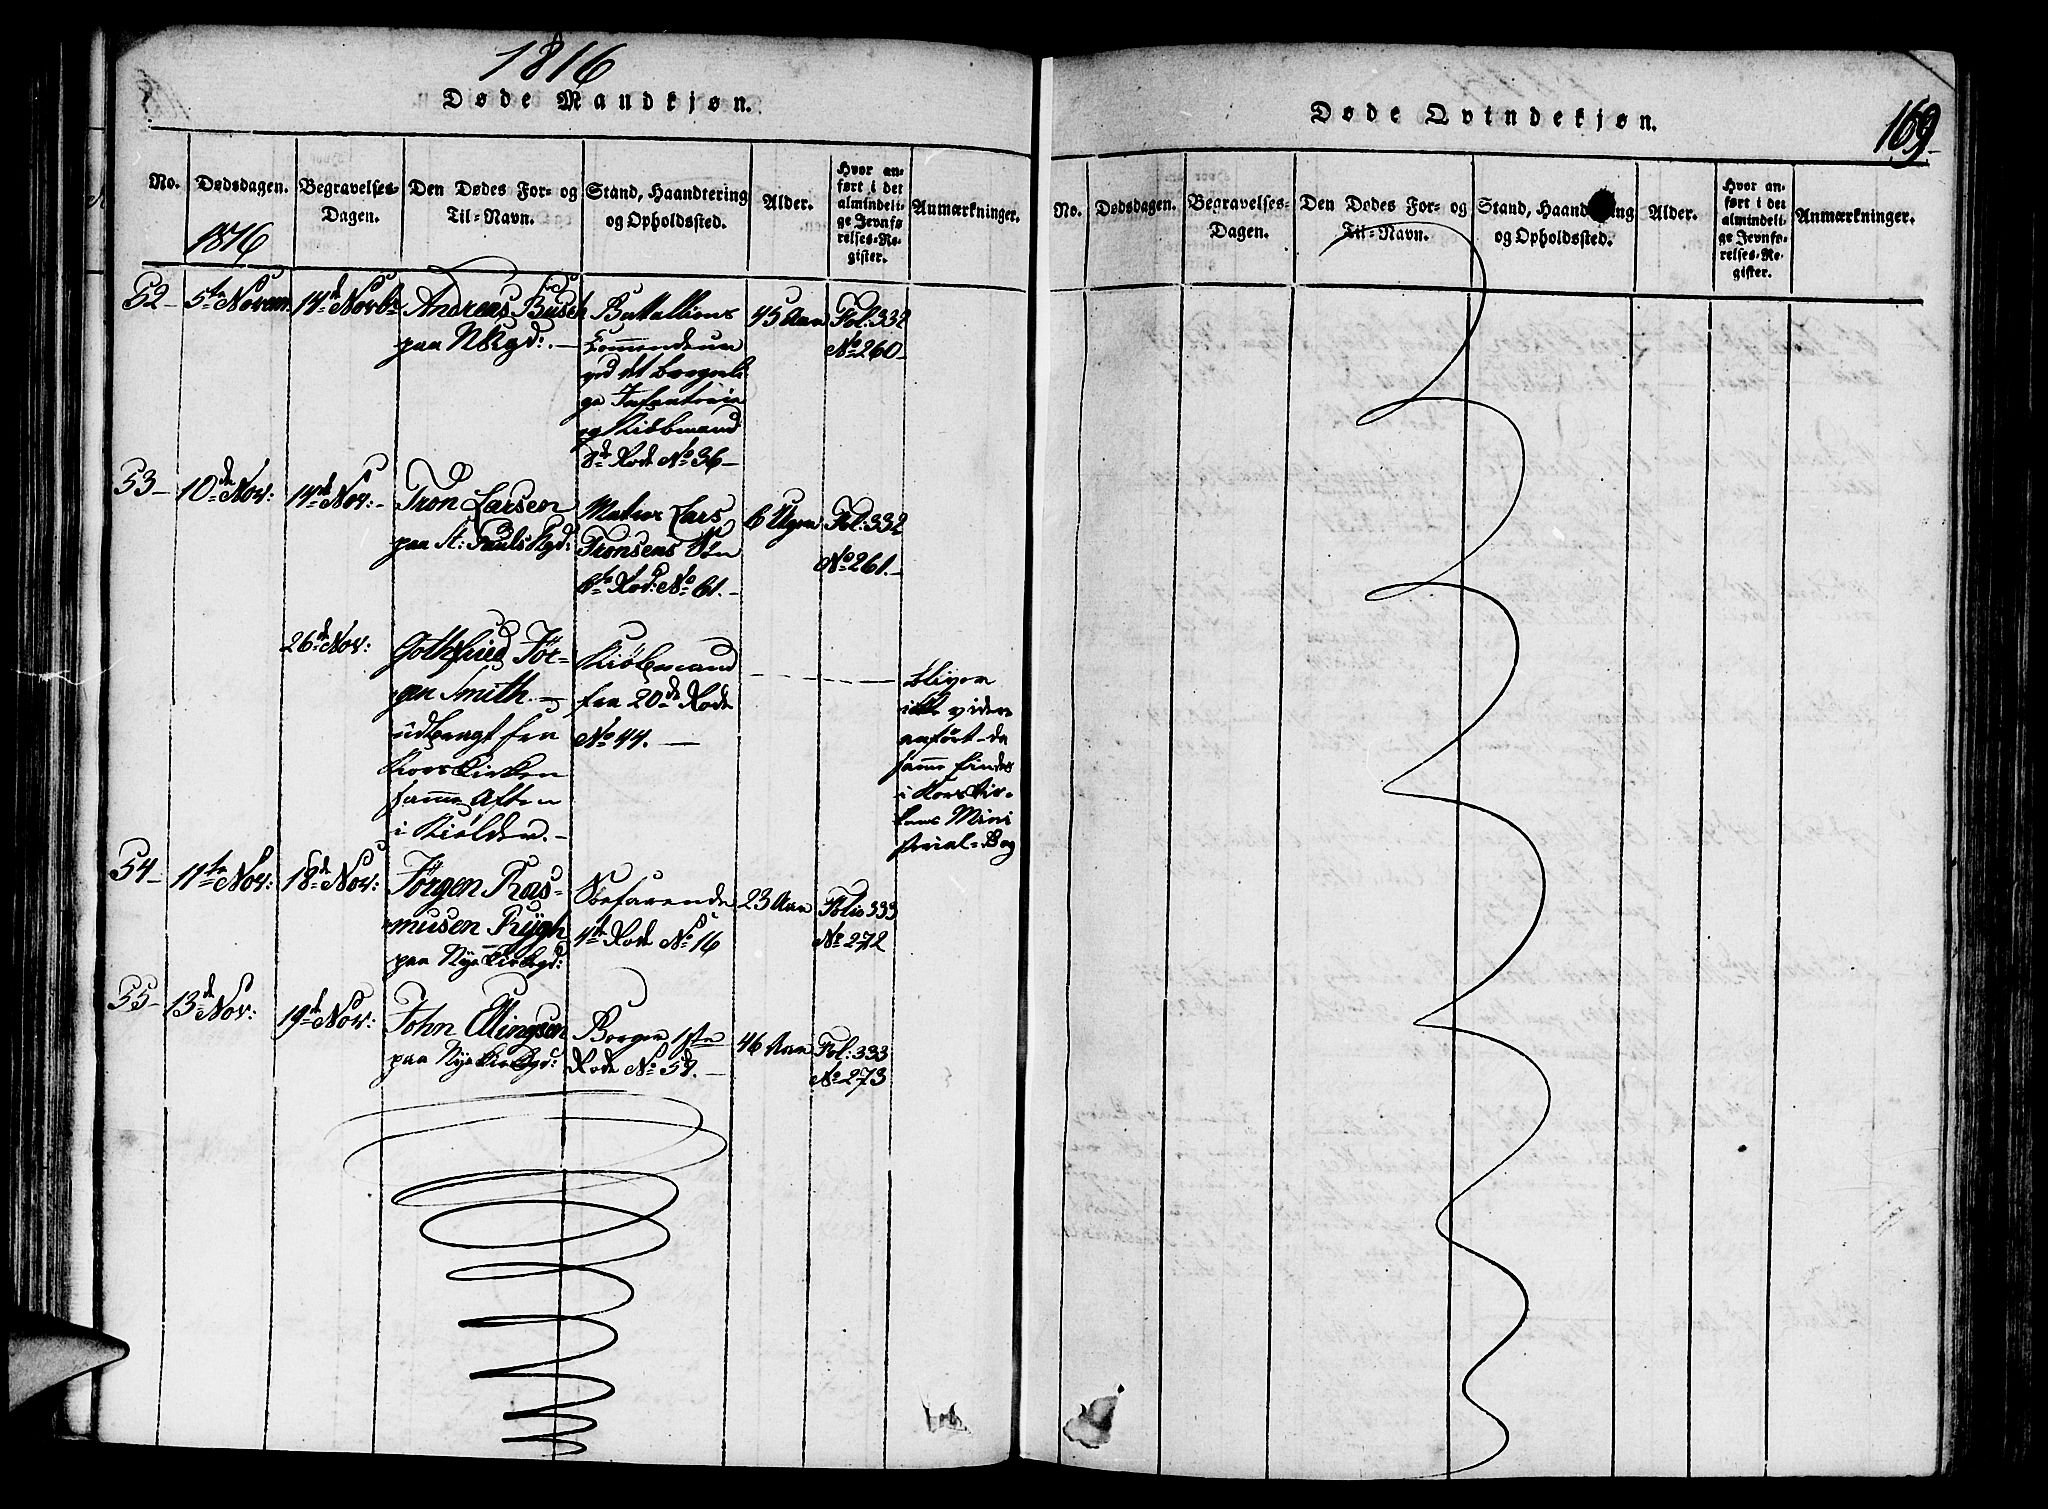 1816
Døde Mandkjøn.
No.
Dødsdagen.
Begravelses-
Dagen.
Den Dødes For- og
Til-Navn.
Stand, Haandtering
og Opholdssted.
Alder.
Hvor an-
ført i det
almindeli-
ge Jevnfø
relses-Re-
gister.
Anmærkninger.
1816
52-
5te Novem.
14de Novbr
Andreas Busch
paa NKgd:.-
Battallions
Commendeur
ved det borgerli-
ge Infanterie
og Kiøbmand
8de Rode No 36-
45 Aar
Fol:332
No 260-
53-
10de Nov:
14de Nov:-
Tron Larsen
paa St: Pauls Kgd:
Matros Lars
Tronsens Søn
6te Rod: No 61.-
6 Uger
Fol:332
No 261.-
26de Nov:
Gothfried Jør-
gen Smith.-
udbragt fra
Korskirken
samme Aften
i Kiølden.-
Kiøbmand
fra 20de Rode
No 44.-
bliver
ikke videre
anført-da
samme findes
i Korskir-
kens Mini
sterial-Bog
54-
11te Nov:
18de Nov:
Jørgen Ras-
musen Rygh
paa Nye Kirkegd:
Søefarende
4de Rode No 16
23 Aar
Folio 333
No 272
55-
13de Nov:
19de Nov:
John Ellingsen
paa Nye Kirkegd:
Borger 1ste
Rode No 58.-
46 Aar
Fol:333
No 273
169
Døde Qvindekjøn.
No.
Dødsdagen.
Begravelses-
Dagen.
Den Dødes For- og
Til-Navn.
Stand, Haandtering
og Opholdssted.
Alder.
Hvor an-
ført i det
almindeli-
ge Jevnfø-
relses-Re-
gister.
Anmærkninger.